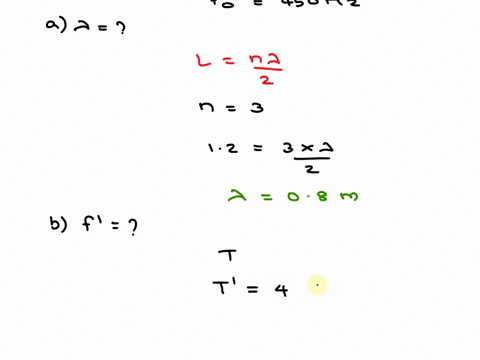 f₀ = 450 Hz
a) λ = ?
L = nλ/2
n = 3
1.2 = 3 × λ/2
λ = 0.8 m
b) f' = ?
T
T' = 4